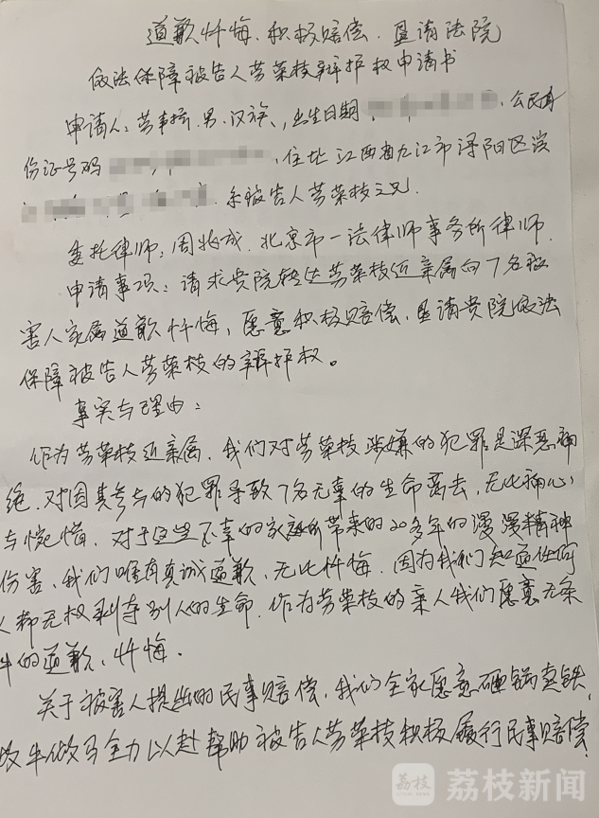 道歉忏悔、积极赔偿、恳请法院
依法保障被告人劳荣枝辩护权申请书
申请人:劳声桥、男、汉族、出生日期 公民身
份证号码 、住址江西省九江市浔阳区滨
系被告人劳荣枝之兄.
委托律师:周兆成、北京市一法律师事务所律师.
申请事项:请求贵院转达劳荣枝近亲属向7名被
害人家属道歉忏悔,愿意积极赔偿,恳请贵院依法
保障被告人劳荣枝的辩护权。
事实与理由:
作为劳荣枝近亲属,我们对劳荣枝涉嫌的犯罪是深恶痛
绝.对因其参与的犯罪导致7名无辜的生命离去,无比痛心
与惋惜.对于这些不幸的家庭所带来的20多年的漫漫精神
伤害、我们唯有真诚道歉、无比忏悔.因为我们知道任何
人都无权剥夺别人的生命.作为劳荣枝的亲人我们愿意无条
件的道歉、忏悔.
关于被害人提出的民事赔偿,我们全家愿意砸锅卖铁,
做牛做马全力以赴帮助被告人劳荣枝积极履行民事赔偿
荔枝 荔枝新闻